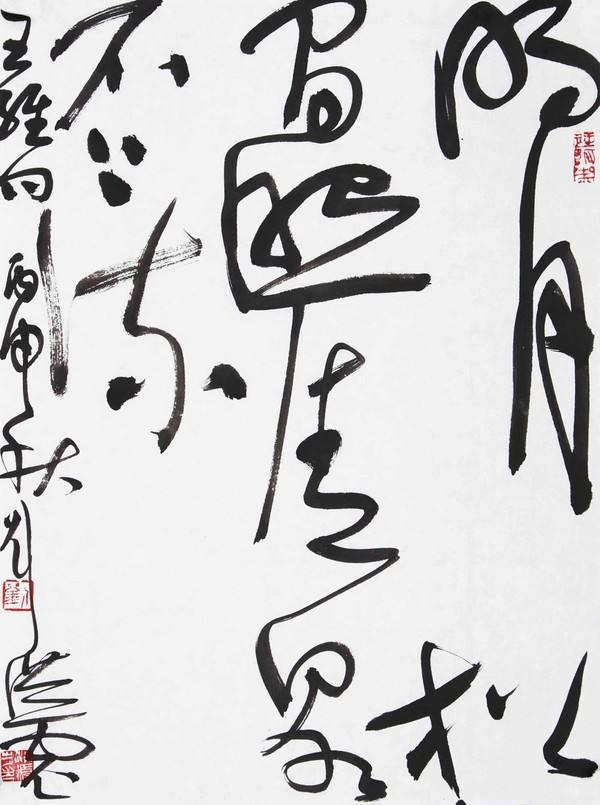 明月松
間照清泉
石上流
王維句 丙申秋